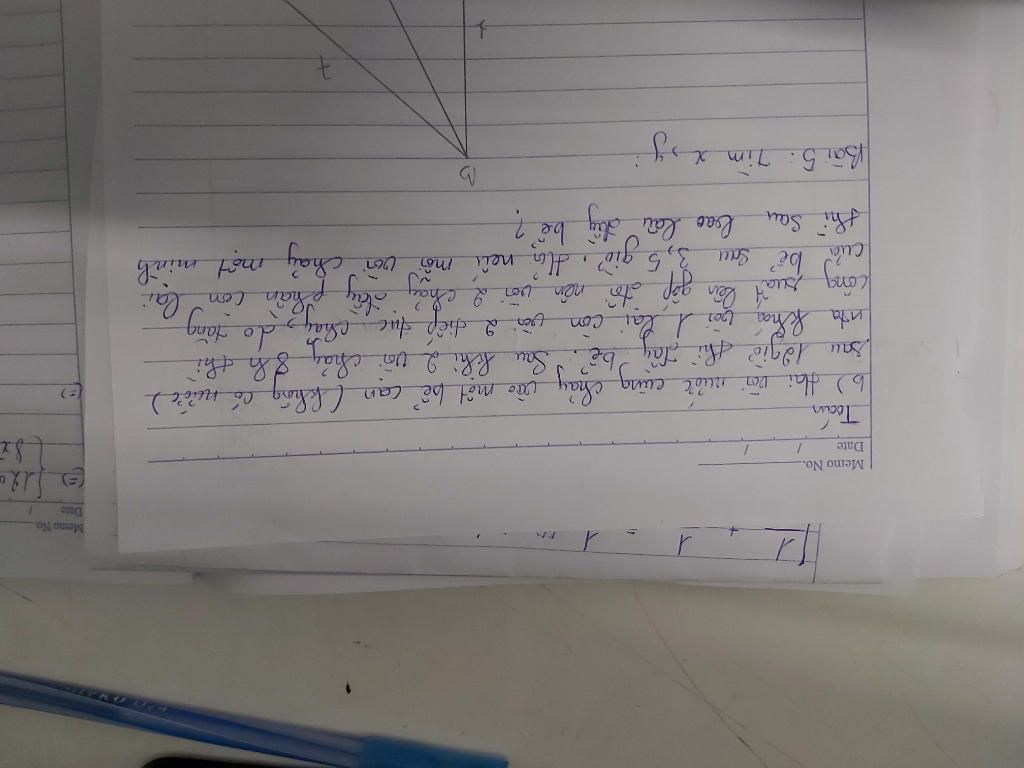 Memo No.
Date / /
Toán
b) Hai vòi nước cùng chảy vào một bể cạn (không có nước)
sau 12 giờ thì đầy bể. Sau khi 2 vòi chảy 8h thì
khoá vòi 1 lại còn vòi 2 tiếp tục chảy, do tăng
công suất lên gấp đôi nên vòi 2 chảy đầy phần còn lại
của bể sau 3,5 giờ. Hỏi nếu mỗi vòi chảy một mình
thì sau bao lâu đầy bể?
Bài 5: Tìm x, y:
B
7
Memo No.
Date /